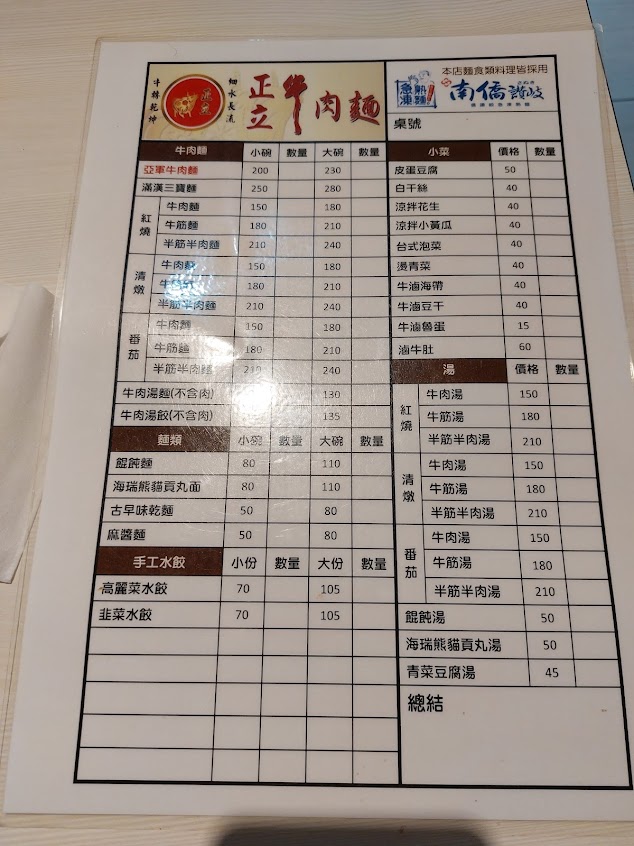 牛轉乾坤
正立
細水長流
正立牛肉麵
本店麵食類料理皆採用
急凍熟麵 南僑讚岐
桌號
牛肉麵 小碗 數量 大碗 數量
亞軍牛肉麵 200 230
滿漢三寶麵 250 280
紅燒
牛肉麵 150 180
牛筋麵 180 210
半筋半肉麵 210 240
清燉
牛肉麵 150 180
牛筋麵 180 210
半筋半肉麵 210 240
番茄
牛肉麵 150 180
牛筋麵 180 210
半筋半肉麵 210 240
牛肉湯麵(不含肉) 130
牛肉湯餃(不含肉) 135
麵類 小碗 數量 大碗 數量
餛飩麵 80 110
海瑞熊貓貢丸面 80 110
古早味乾麵 50 80
麻醬麵 50 80
手工水餃 小份 數量 大份 數量
高麗菜水餃 70 105
韭菜水餃 70 105
小菜 價格 數量
皮蛋豆腐 50
白干絲 40
涼拌花生 40
涼拌小黃瓜 40
台式泡菜 40
燙青菜 40
牛滷海帶 40
牛滷豆干 40
牛滷魯蛋 15
滷牛肚 60
湯 價格 數量
紅燒
牛肉湯 150
牛筋湯 180
半筋半肉湯 210
清燉
牛肉湯 150
牛筋湯 180
半筋半肉湯 210
番茄
牛肉湯 150
牛筋湯 180
半筋半肉湯 210
餛飩湯 50
海瑞熊貓貢丸湯 50
青菜豆腐湯 45
總結